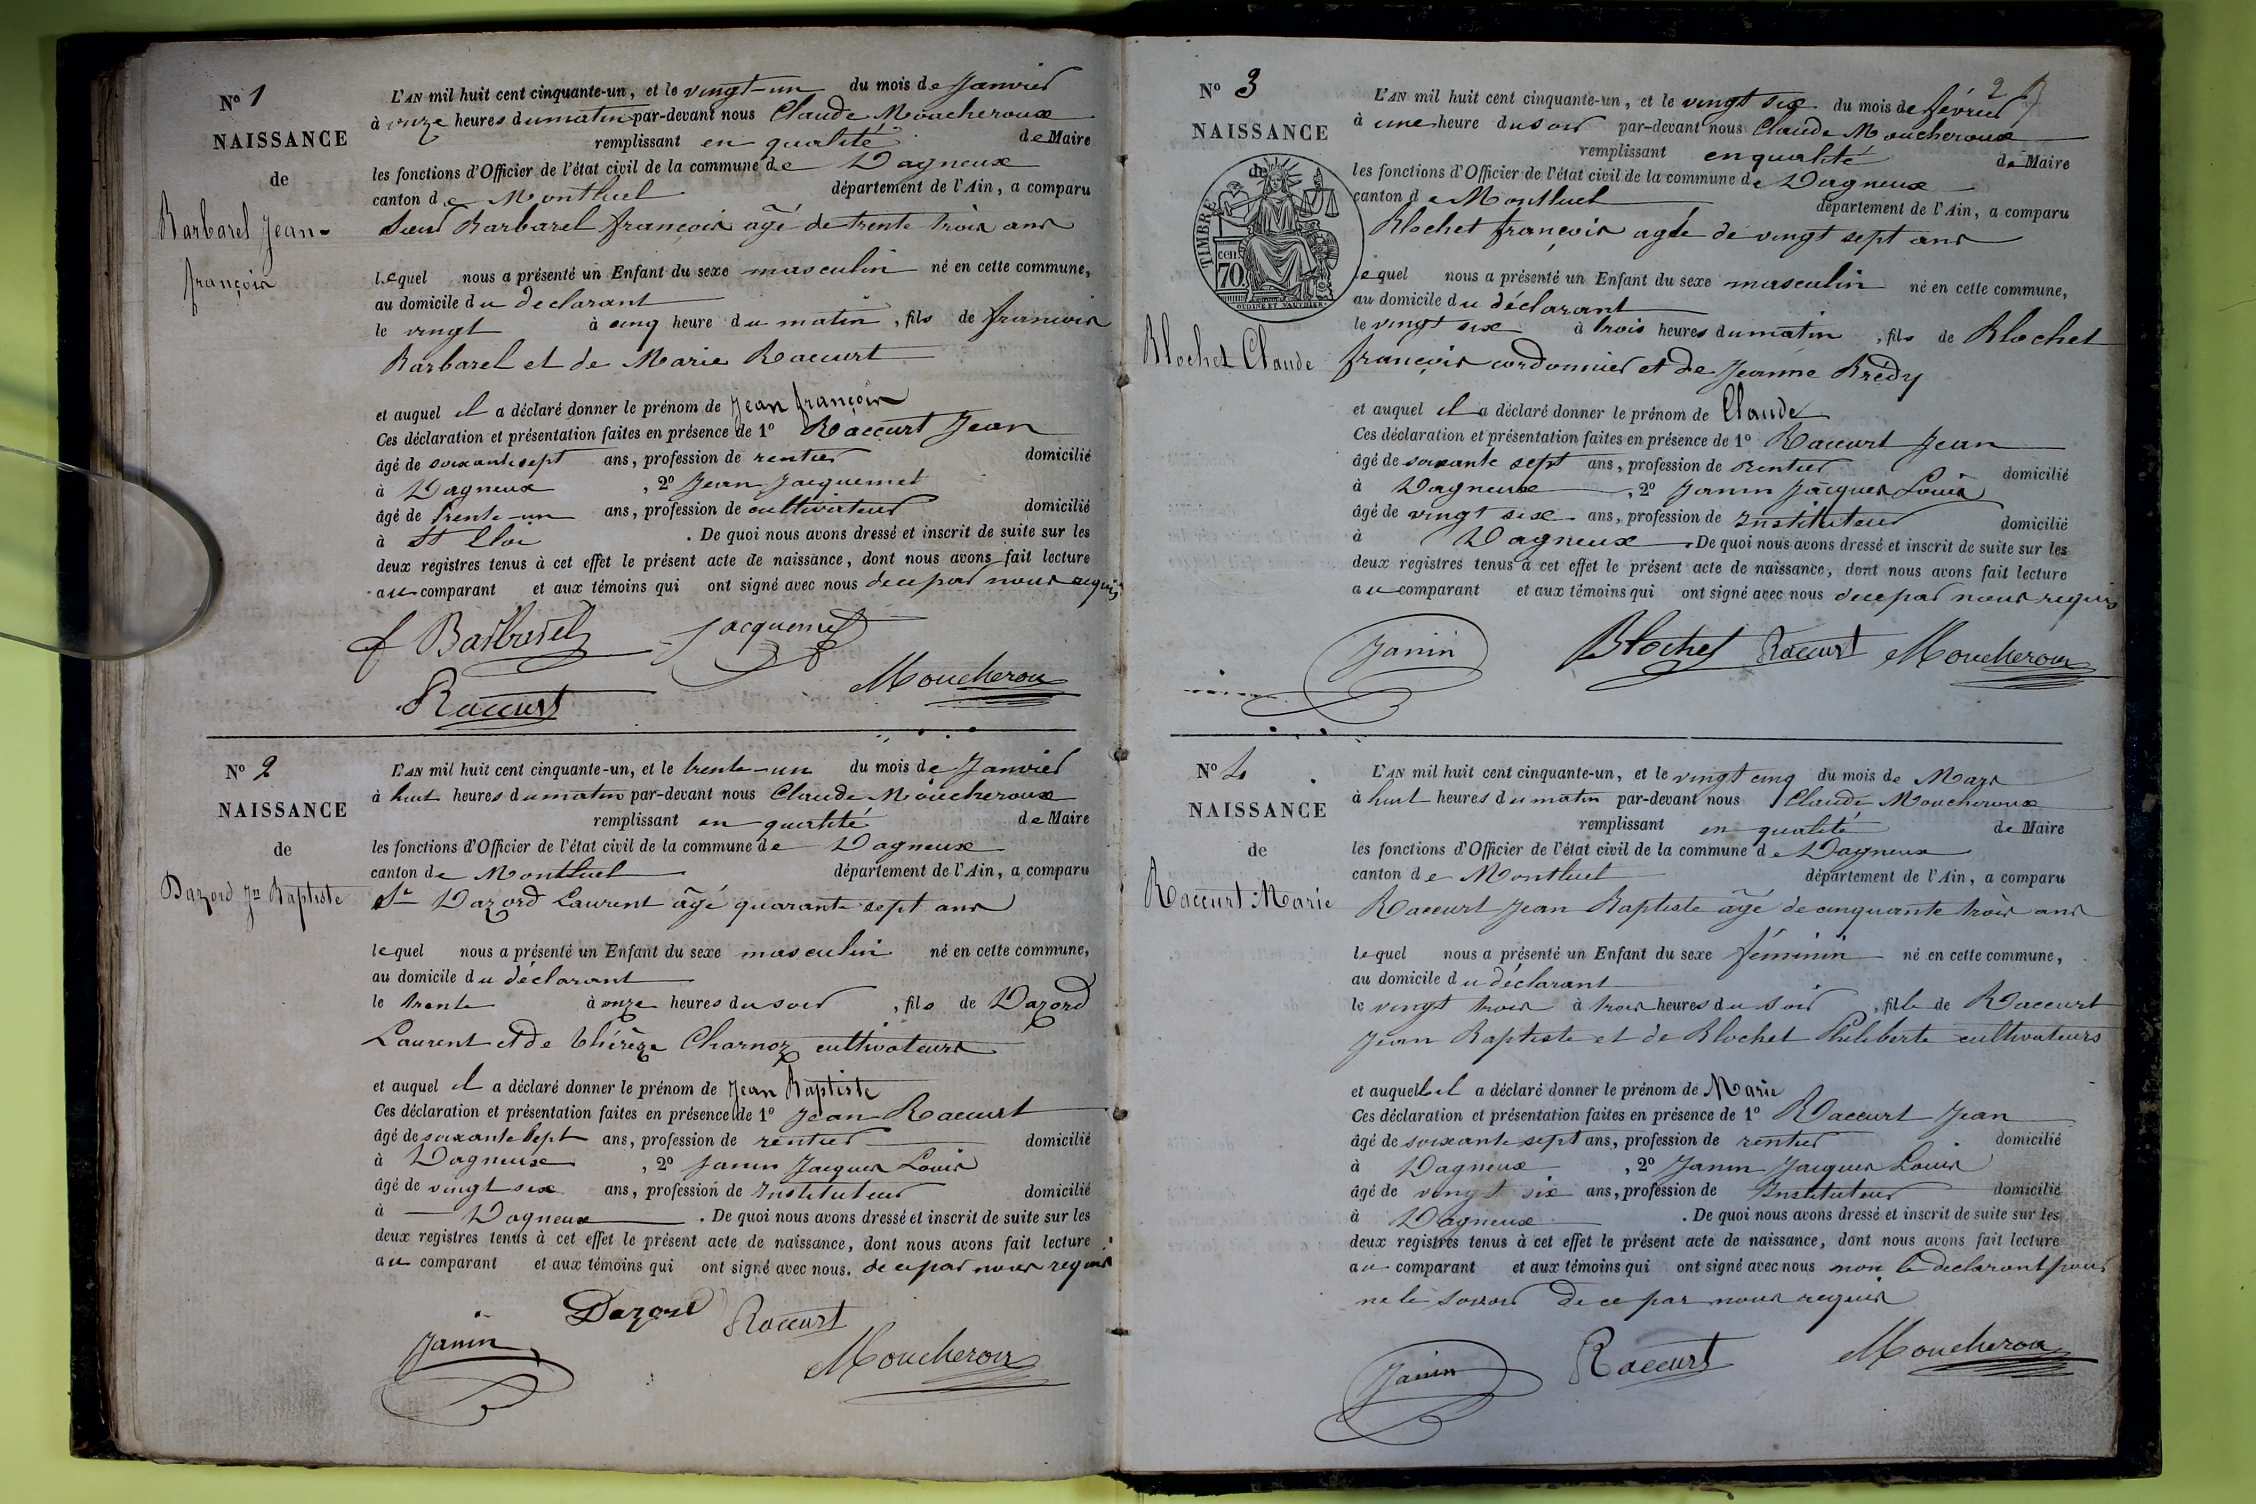 N° 1
NAISSANCE
de
Barbarel Jean-
françois
L'AN mil huit cent cinquante-un, et le vingt-un du mois de Janvier
à onze heures du matin par-devant nous Claude Moucheroux
remplissant en qualité de Maire
les fonctions d'Officier de l'état civil de la commune de Dagneux
canton de Montluel département de l'Ain, a comparu
Sieur Barbarel françois âgé de trente trois ans
lequel nous a présenté un Enfant du sexe masculin né en cette commune,
au domicile du declarant
le vingt à cinq heure du matin, fils de françois
Barbarel et de Marie Raccurt
et auquel il a déclaré donner le prénom de Jean françois
Ces déclaration et présentation faites en présence de 1° Raccurt Jean
âgé de soixante sept ans, profession de rentier domicilié
à Dagneux, 2° Jean Jacquemet
âgé de trente-un ans, profession de cultivateur domicilié
à St Eloi. De quoi nous avons dressé et inscrit de suite sur les
deux registres tenus à cet effet le présent acte de naissance, dont nous avons fait lecture
au comparant et aux témoins qui ont signé avec nous de ce par nous requis
f Barbarel Jacquemet
Raccurt Moucheroux
N° 2
NAISSANCE
de
Dazord Jn Baptiste
L'AN mil huit cent cinquante-un, et le trente-un du mois de Janvier
à huit heures du matin par-devant nous Claude Moucheroux
remplissant en qualité de Maire
les fonctions d'Officier de l'état civil de la commune de Dagneux
canton de Montluel département de l'Ain, a comparu
Sr Dazord Laurent âgé quarante sept ans
lequel nous a présenté un Enfant du sexe masculin né en cette commune,
au domicile du déclarant
le trente à onze heures du soir, fils de Dazord
Laurent et de Thérèze Charnoz cultivateurs
et auquel il a déclaré donner le prénom de Jean Baptiste
Ces déclaration et présentation faites en présence de 1° Jean Raccurt
âgé de soixante sept ans, profession de rentier domicilié
à Dagneux, 2° Janin Jacques Louis
âgé de vingt six ans, profession de Instituteur domicilié
à Dagneux. De quoi nous avons dressé et inscrit de suite sur les
deux registres tenus à cet effet le présent acte de naissance, dont nous avons fait lecture
au comparant et aux témoins qui ont signé avec nous. de ce par nous requis
Dazord Raccurt
Janin Moucheroux
2
N° 3
NAISSANCE
de
TIMBRE
cen
70.
OUDINE ET VAUTHIER
Blochet Claude
L'AN mil huit cent cinquante-un, et le vingt six du mois de février
à une heure du soir par-devant nous Claude Moucheroux
remplissant en qualité de Maire
les fonctions d'Officier de l'état civil de la commune de Dagneux
canton de Montluel département de l'Ain, a comparu
Blochet françois agée de vingt sept ans
lequel nous a présenté un Enfant du sexe masculin né en cette commune,
au domicile du déclarant
le vingt six à trois heures du matin, fils de Blochet
françois cordonnier et de Jeanne Brédy
et auquel il a déclaré donner le prénom de Claude
Ces déclaration et présentation faites en présence de 1° Raccurt Jean
âgé de soixante sept ans, profession de rentier domicilié
à Dagneux, 2° Janin Jacques Louis
âgé de vingt six ans, profession de Instituteur domicilié
à Dagneux. De quoi nous avons dressé et inscrit de suite sur les
deux registres tenus à cet effet le présent acte de naissance, dont nous avons fait lecture
au comparant et aux témoins qui ont signé avec nous de ce par nous requis
Janin Blochet Raccurt Moucheroux
N° 4
NAISSANCE
de
Raccurt Marie
L'AN mil huit cent cinquante-un, et le vingt cinq du mois de Mars
à huit heures du matin par-devant nous Claude Moucheroux
remplissant en qualité de Maire
les fonctions d'Officier de l'état civil de la commune de Dagneux
canton de Montluel département de l'Ain, a comparu
Raccurt Jean Baptiste âgé de cinquante trois ans
lequel nous a présenté un Enfant du sexe féminin né en cette commune,
au domicile du déclarant
le vingt trois à trois heures du soir, fille de Raccurt
Jean Baptiste et de Blochet Philiberte cultivateurs
et auquelle il a déclaré donner le prénom de Marie
Ces déclaration et présentation faites en présence de 1° Raccurt Jean
âgé de soixante sept ans, profession de rentier domicilié
à Dagneux, 2° Janin Jacques Louis
âgé de vingt six ans, profession de Instituteur domicilié
à Dagneux. De quoi nous avons dressé et inscrit de suite sur les
deux registres tenus à cet effet le présent acte de naissance, dont nous avons fait lecture
au comparant et aux témoins qui ont signé avec nous non le declarant pour
ne le savoir de ce par nous requis
Janin Raccurt Moucheroux